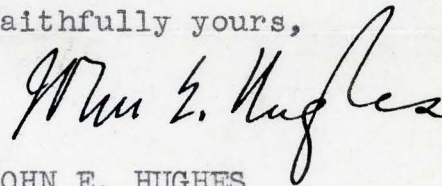 aithfully yours,
John E. Hughes
OHN E. HUGHES